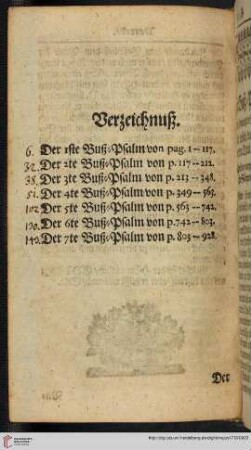 Verzeichnuß.
6. Der 1ste Buß-Psalm von pag. 1--117.
32. Der 2te Buß-Psalm von p. 117--212.
38. Der 3te Buß-Psalm von p. 213--348.
51. Der 4te Buß-Psalm von p. 349--563.
102. Der 5te Buß-Psalm von p. 563--742.
130. Der 6te Buß-Psalm von p. 742--803.
140. Der 7te Buß-Psalm von p. 803--928.
Der